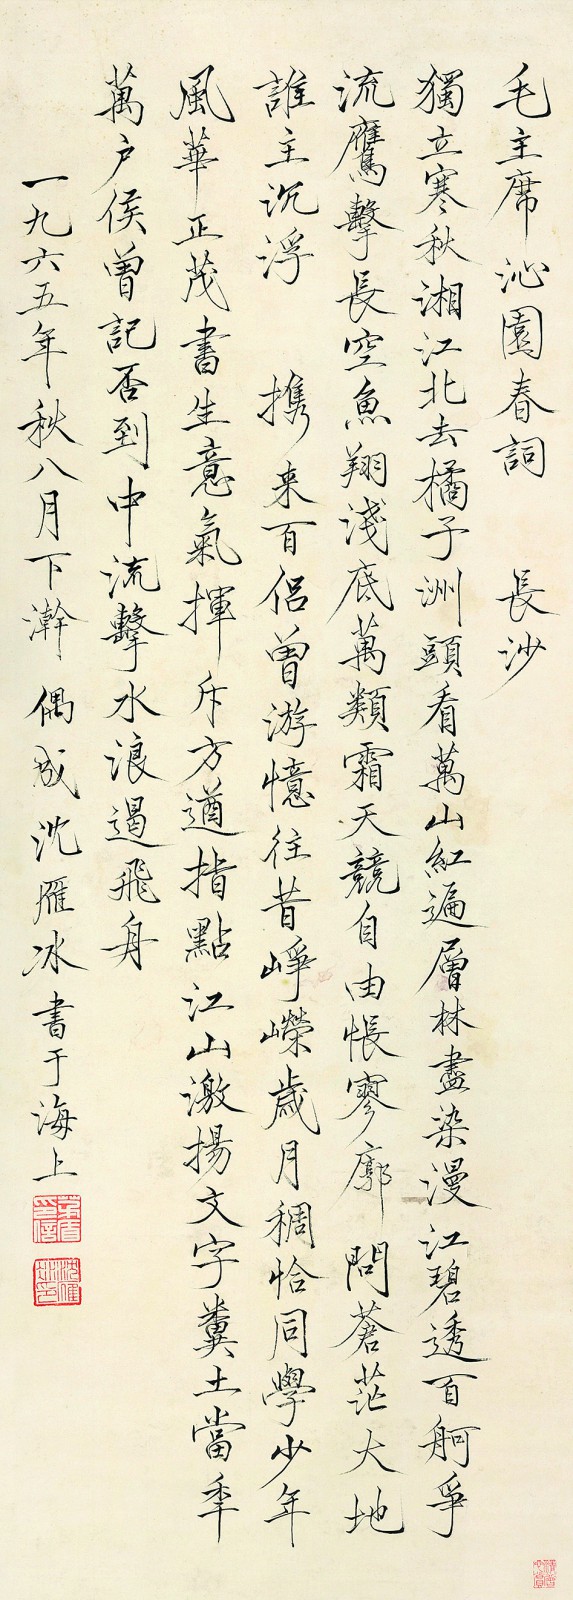 毛主席沁園春詞 長沙
獨立寒秋湘江北去橘子洲頭看萬山紅遍層林盡染漫江碧透百舸爭
流鷹擊長空魚翔淺底萬類霜天競自由悵寥廓問蒼茫大地
誰主沉浮 携來百侶曾游憶往昔崢嶸歲月稠恰同學少年
風華正茂書生意氣揮斥方遒指點江山激揚文字糞土當年
萬户侯曾記否到中流擊水浪遏飛舟
一九六五年秋八月下澣偶成沈雁冰書于海上
茅盾印信
沈雁冰印